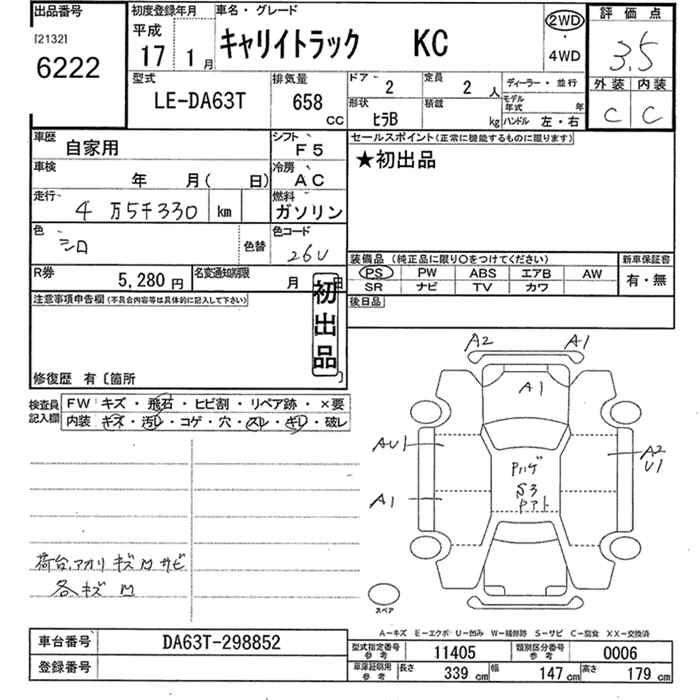 出品番号 初度登録年月 車名・グレード 2WD 評価点
[2132] 平成 キャリイトラック KC ・ 3.5
6222 17 1月 4WD
型式 排気量 ドア 2 定員 2人 ディーラー・並行 外装 内装
LE-DA63T 658 cc 形状 ヒラB 積載 kg モデル年式 年 C C
ハンドル 左・右
車歴 自家用 シフト F5 セールスポイント(正常に機能するものに限ります)
車検 年 月( 日) 冷房 AC ★初出品
走行 4万5千330 km 燃料 ガソリン
色 シロ 色替 色コード 26U
装備品(純正品に限り○をつけてください) 新車保証書
R券 5,280円 名変通知期限 月 日 PS PW ABS エアB AW 有・無
SR ナビ TV カワ
注意事項申告欄(不具合内容等は具体的に記入して下さい) 初出品 後日品
修復歴 有〔箇所 〕
検査員記入欄 FW キズ・飛石・ヒビ割・リペア跡・×要
内装 キズ・汚レ・コゲ・穴・スレ・キレ・破レ
A2 A1
A1
AU1 A2
U1
Pハゲ
A1 S3
Pアト
荷台、アオリ キズ M サビ
各キズ M
スペア
A-キズ E-エクボ U-凹み W-補修跡 S-サビ C-腐食 XX-交換済
車台番号 DA63T-298852 型式指定番号 参考 11405 類別区分番号 参考 0006
登録番号 車庫証明用 参考 長さ 339cm 幅 147cm 高さ 179cm